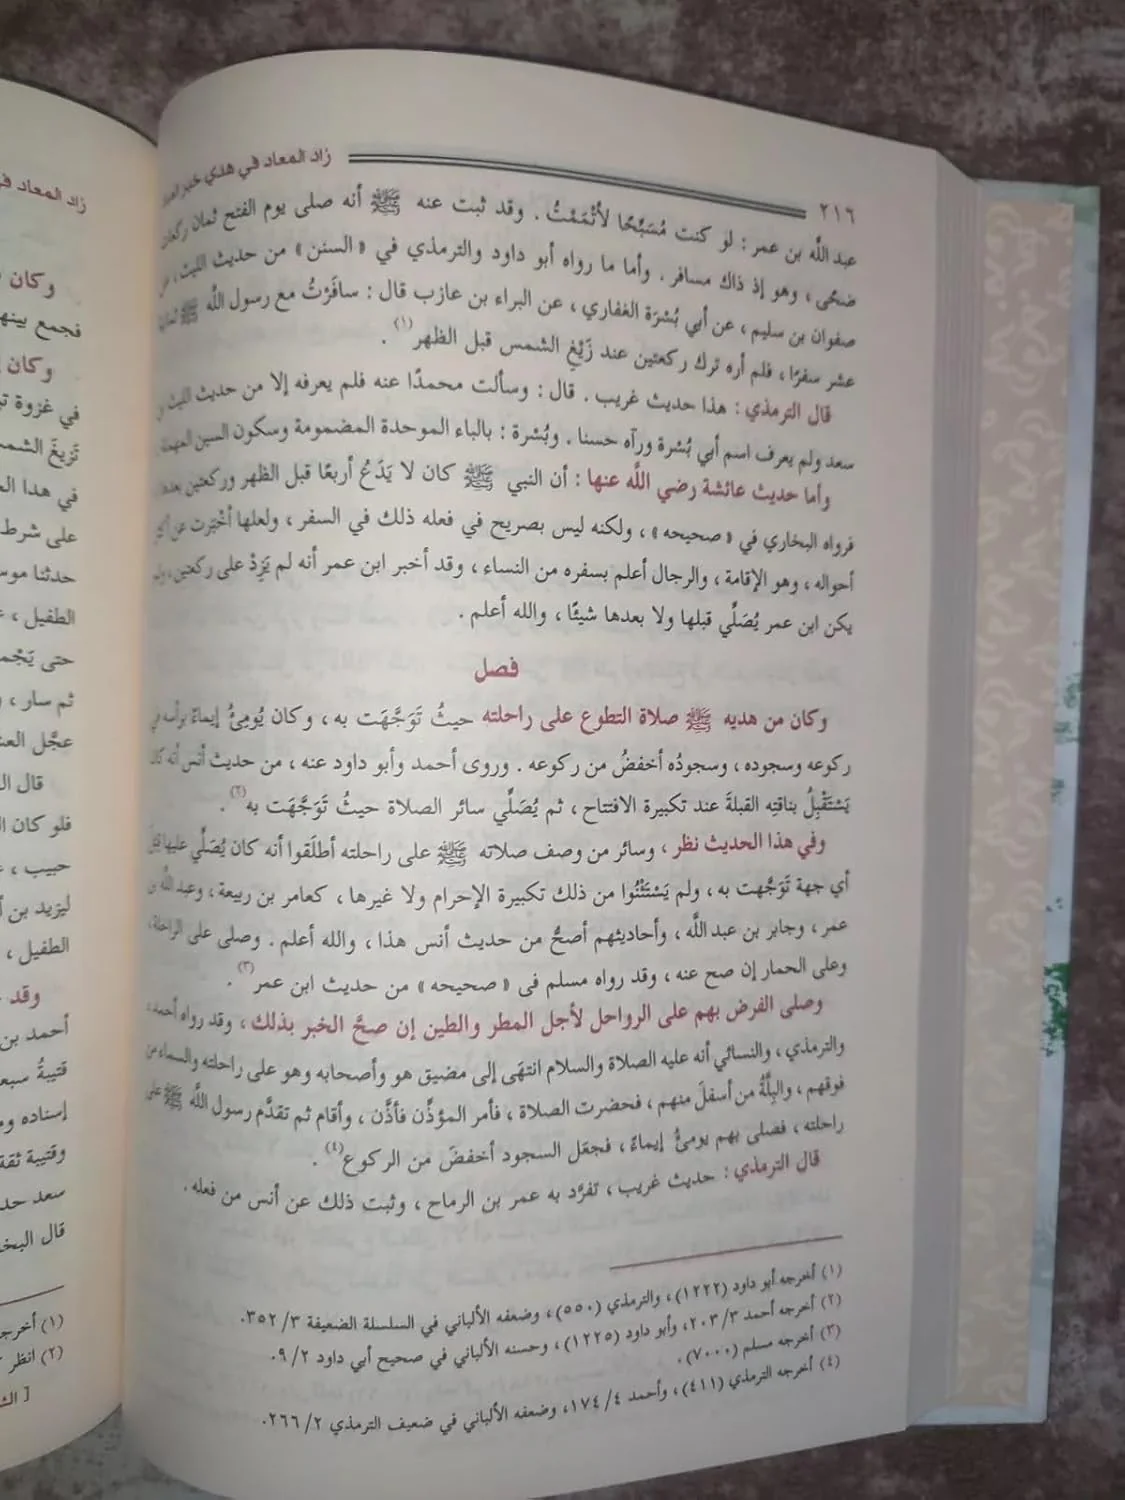 ٢١٦
زاد المعاد في هدي خير العباد
عبد اللَّه بن عمر : لو كنت مُسَبِّحًا لأَتْمَمْتُ . وقد ثبت عنه ﷺ أنه صلى يوم الفتح ثمان ركعات
ضحًى ، وهو إذ ذاك مسافر . وأما ما رواه أبو داود والترمذي في « السنن » من حديث الليث ، عن
صفوان بن سليم ، عن أبي بُسْرَة الغفاري ، عن البراء بن عازب قال : سافَرْتُ مع رسول اللَّه ﷺ
عشر سفرًا ، فلم أره ترك ركعتين عند زَيْغِ الشمس قبل الظهر(١) .
قال الترمذي : هذا حديث غريب . قال : وسألت محمدًا عنه فلم يعرفه إلا من حديث الليث بن
سعد ولم يعرف اسم أبي بُسْرة ورآه حسنا . وبُسْرة : بالباء الموحدة المضمومة وسكون السين المهملة
وأما حديث عائشة رضي اللَّه عنها : أن النبي ﷺ كان لا يَدَعُ أربعًا قبل الظهر وركعتين بعدها
فرواه البخاري في « صحيحه » ، ولكنه ليس بصريح في فعله ذلك في السفر ، ولعلها أخْبَرَت عن أكثر
أحواله ، وهو الإقامة ، والرجال أعلم بسفره من النساء ، وقد أخبر ابن عمر أنه لم يَزِدْ على ركعتين ، ولم
يكن ابن عمر يُصَلِّي قبلها ولا بعدها شيئًا ، والله أعلم .
فصل
وكان من هديه ﷺ صلاة التطوع على راحلته حيثُ تَوَجَّهَت به ، وكان يُومِئُ إيماءً برأسه في
ركوعه وسجوده ، وسجودُه أخفضُ من ركوعه . وروى أحمد وأبو داود عنه ، من حديث أنس أنه كان
يَسْتَقْبِلُ بناقتِه القبلةَ عند تكبيرة الافتتاح ، ثم يُصَلِّي سائر الصلاة حيثُ تَوَجَّهَت به(٢) .
وفي هذا الحديث نظر ، وسائر من وصف صلاته ﷺ على راحلته أطلَقوا أنه كان يُصَلِّي عليها قِبَلَ
أي جهة تَوَجَّهت به ، ولم يَسْتَثْنُوا من ذلك تكبيرة الإحرام ولا غيرها ، كعامر بن ربيعة ، وعبد اللَّه بن
عمر ، وجابر بن عبد اللَّه ، وأحاديثهم أصحُّ من حديث أنس هذا ، والله أعلم . وصلى على الراحلة ،
وعلى الحمار إن صح عنه ، وقد رواه مسلم في « صحيحه » من حديث ابن عمر(٣) .
وصلى الفرض بهم على الرواحل لأجل المطر والطين إن صحَّ الخبر بذلك ، وقد رواه أحمد ،
والترمذي ، والنسائي أنه عليه الصلاة والسلام انتهَى إلى مضيق هو وأصحابه وهو على راحلته والسماء من
فوقهم ، والبِلَّةُ من أسفلَ منهم ، فحضرت الصلاة ، فأمر المؤذِّن فأذَّن ، وأقام ثم تقدَّم رسول اللَّه ﷺ على
راحلته ، فصلى بهم يومئُ إيماءً ، فجعَل السجود أخفضَ من الركوع(٤) .
قال الترمذي : حديث غريب ، تفرَّد به عمر بن الرماح ، وثبت ذلك عن أنس من فعله .
(١) أخرجه أبو داود (١٢٢٢) ، والترمذي (٥٥٠) ، وضعفه الألباني في السلسلة الضعيفة ٣/ ٣٥٢.
(٢) أخرجه أحمد ٣/ ٢٠٣ ، وأبو داود (١٢٢٥) ، وحسنه الألباني في صحيح أبي داود ٢/ ٩.
(٣) أخرجه مسلم (٧٠٠٠) .
(٤) أخرجه الترمذي (٤١١) ، وأحمد ٤/ ١٧٤ ، وضعفه الألباني في ضعيف الترمذي ٢/ ٢٦٦.
زاد المعاد في
وكان
فجمع بينه
وكان
في غزوة
تَزيغَ الشمس
في هذا
على شرط
حدثنا
الطفيل ،
حتى
ثم سار ،
عجَّل
قال
فلو كان
حبيب ،
ليزيد بن
الطفيل ،
وقد
أحمد بن
قتيبةُ
إسناده
وقتيبة ثقة
سعد
قال
(١)
(٢) انظر
[